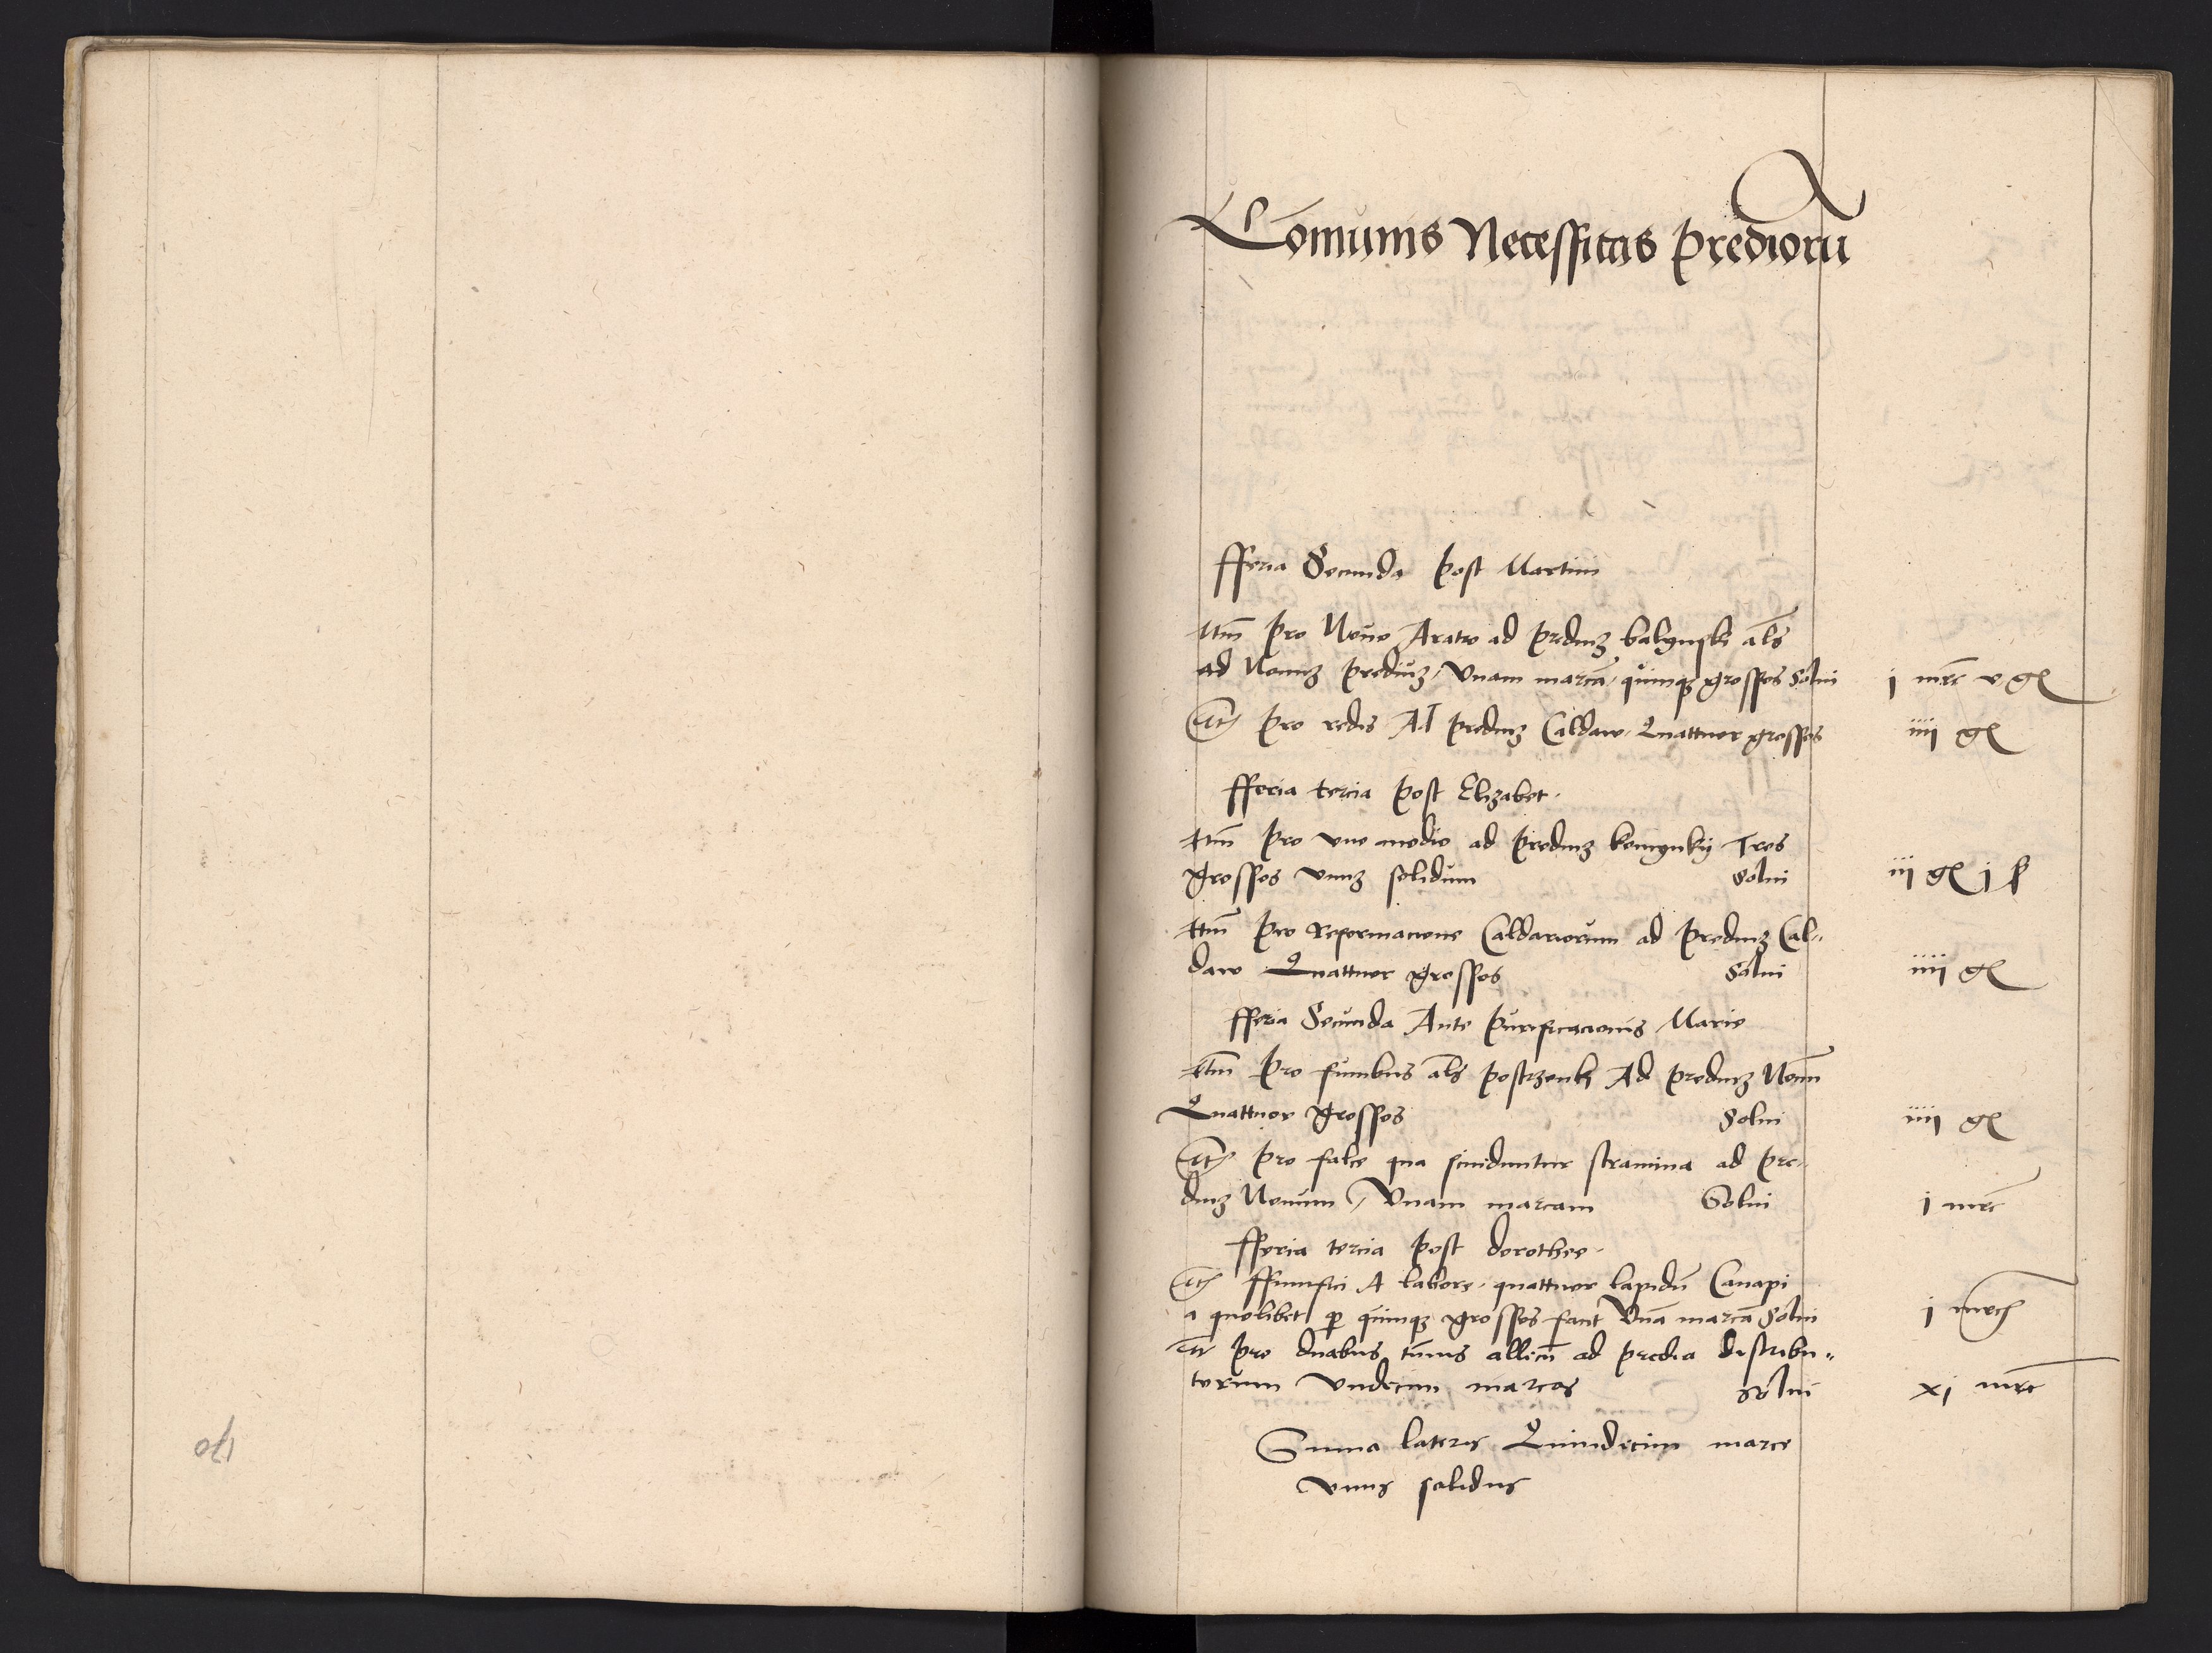 Comunis Necessitas prediorū
fferia Secunda post Martini
Itm̄ pro Nouo Aratro ad prediuʒ balynski al̄s
ad Nouuʒ prediuʒ, Vnam marcā, quinqʒ grossos Solui j mrc̄ v gͦ
Itē pro redis Ad prediuʒ Caldaw, Quattuor grossos iiij gͦ
fferia tercia post Elizabet.
Itm̄ pro vno modio ad prediuʒ komynky Tres
grossos vnuʒ solidum Solui iij gͦ j ß
Itm̄ pro Reformacione Caldariorum ad prediuʒ Cal„
daw Quattuor grossos Solui iiij gͦ
fferia Secunda Ante purificacionis Marie
Itm̄ pro funibus al̄s postrzonki Ad prediuʒ Nouū
Quattuor grossos Solui iiij gͦ
Itē pro falce qua scinduntur stramina ad pre„
diuʒ Nouum, Vnam marcam Solui j mrc̄
fferia tercia post dorothee.
Itē ffunifici A labore, quattuor lapidū Canapi
a quolibet ꝑ quinqʒ grossos fa͞ct Vnā marcā Solui j mrc̄
Itē pro duabus tūnis allecū ad predia distribu„
torum vndecim marcas Solui xj mrc̄
Suma lateris Quindecim marce
vnus solidus
170